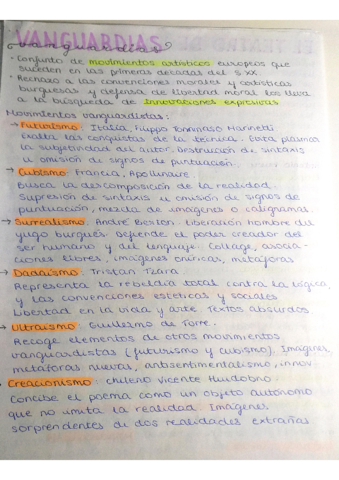 VANGUARDIAS
vanguardias
· Conjunto de movimientos artísticos europeos que
suceden en las primeras décadas del S XX.
· Rechazo a las convenciones morales y
burguesas y defensa de libertad moral los lleva
a la búsqueda de innovaciones expresivas
Movimientos vanguardistas:
→ Futurismo: Italia, Filippo Tommaso Marinetti
Exalta las conquistas de la técnica. Evita plasmar
la subjetividad del autor. Destrucción de sintaxis
u omisión de signos de puntuación.
→ Cubismo: Francia, Apollinaire.
Busca la descomposición de la realidad.
Supresión de sintaxis u omisión de signos de
puntuación, mezcla de imágenes o caligramas.
→ Surrealismo: André Breton. Liberación hombre del
yugo burgués. Defiende el poder creador del
ser humano y del lenguaje. Collage, asocia-
ciones libres, imágenes oníricas, metáforas
→ Dadaísmo: Tristan Tzara
Representa la rebeldía total contra la lógica
y las convenciones estéticas y sociales
Libertad en la vida y arte. Textos absurdos
→ Ultraísmo: Guillermo de Torre.
Recoge elementos de otros movimientos
vanguardistas (futurismo y cubismo). Imágenes,
metáforas nuevas, antisentimentalismo, innov.
→ Creacionismo: chileno Vicente Huidobro
Concibe el poema como un objeto autónomo
que no imita la realidad. Imágenes
sorprendentes de dos realidades extrañas